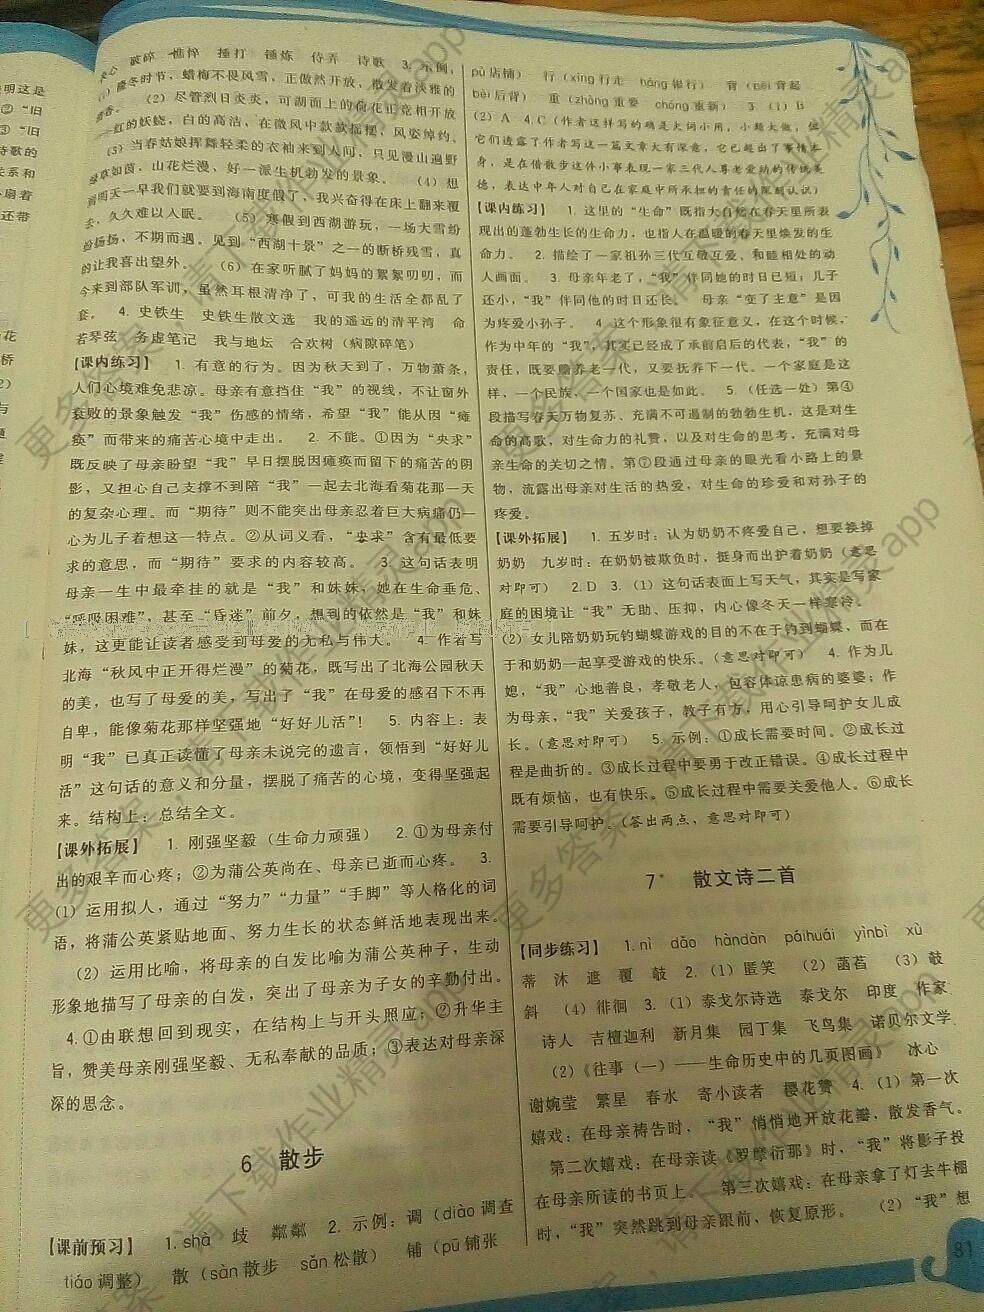 破碎 憔悴 捶打 锤炼 侍弄 诗歌 3. 示例,
(1)隆冬时节,蜡梅不畏风雪,正傲然开放,散发着淡雅的
(2)尽管烈日炎炎,可湖面上的荷花正竞相开放
——红的妖娆,白的高洁,在微风中款款摇摆,风姿绰约。
(3)当春姑娘挥舞轻柔的衣袖来到人间,只见漫山遍野
绿草如茵,山花烂漫,好一派生机勃发的景象。 (4)想
明天一早我们就要到海南度假了,我兴奋得在床上翻来覆
去,久久难以入眠。 (5)寒假到西湖游玩,一场大雪纷
纷扬扬,不期而遇。见到“西湖十景”之一的断桥残雪,真
的让我喜出望外。 (6)在家听腻了妈妈的絮絮叨叨,而
今来到部队军训,虽然耳根清净了,可我的生活全都乱了
套。 4. 史铁生 史铁生散文选 我的遥远的清平湾 命
若琴弦 务虚笔记 我与地坛 合欢树(病隙碎笔)
【课内练习】 1. 有意的行为。因为秋天到了,万物萧条,
人们心境难免悲凉。母亲有意挡住“我”的视线,不让窗外
衰败的景象触发“我”伤感的情绪,希望“我”能从因“瘫
痪”而带来的痛苦心境中走出。 2. 不能。①因为“央求”
既反映了母亲盼望“我”早日摆脱因瘫痪而留下的痛苦的阴
影,又担心自己支撑不到陪“我”一起去北海看菊花那一天
的复杂心理。而“期待”则不能突出母亲忍着巨大病痛仍一
心为儿子着想这一特点。②从词义看,“央求”含有最低要
求的意思,而“期待”要求的内容较高。 3. 这句话表明
母亲一生中最牵挂的就是“我”和妹妹,她在生命垂危、
“呼吸困难”,甚至“昏迷”前夕,想到的依然是“我”和妹
妹,这更能让读者感受到母爱的无私与伟大。 4. 作者写
北海“秋风中正开得烂漫”的菊花,既写出了北海公园秋天
的美,也写了母爱的美,写出了“我”在母爱的感召下不再
自卑,能像菊花那样坚强地“好好儿活”! 5. 内容上:表
明“我”已真正读懂了母亲未说完的遗言,领悟到“好好儿
活”这句话的意义和分量,摆脱了痛苦的心境,变得坚强起
来。结构上:总结全文。
【课外拓展】 1. 刚强坚毅(生命力顽强) 2. ①为母亲付
出的艰辛而心疼;②为蒲公英尚在、母亲已逝而心疼。 3.
(1)运用拟人,通过“努力”“力量”“手脚”等人格化的词
语,将蒲公英紧贴地面、努力生长的状态鲜活地表现出来。
(2)运用比喻,将母亲的白发比喻为蒲公英种子,生动
形象地描写了母亲的白发,突出了母亲为子女的辛勤付出。
4. ①由联想回到现实,在结构上与开头照应;②升华主
旨,赞美母亲刚强坚毅、无私奉献的品质;③表达对母亲深
深的思念。
6 散步
【课前预习】 1. shà 歧 粼粼 2. 示例:调(diào调查
tiáo调整) 散(sàn散步 sǎn松散) 铺(pū铺张
pù店铺) 行(xíng行走 háng银行) 背(bēi背起
bèi后背) 重(zhòng重要 chóng重新) 3. (1)B
(2)A 4. C(作者这样写的确是大词小用,小题大做,但
它们透露了作者写这一篇文章大有深意,它已超出了事情本
身,是在借散步这件小事表现一家三代人尊老爱幼的传统美
德,表达中年人对自己在家庭中所承担的责任的深刻认识)
【课内练习】 1. 这里的“生命”既指大自然在春天里所表
现出的蓬勃生长的生命力,也指人在温暖的春天里焕发的生
命力。 2. 描绘了一家祖孙三代互敬互爱、和睦相处的动
人画面。 3. 母亲年老了,“我”伴同她的时日已短;儿子
还小,“我”伴同他的时日还长。 母亲“变了主意”是因
为疼爱小孙子。 4. 这个形象很有象征意义,在这个时候,
作为中年的“我”,其实已经成了承前启后的代表,“我”的
责任,既要赡养老一代,又要抚养下一代。一个家庭是这
样,一个民族,一个国家也是如此。 5. (任选一处)第④
段描写春天万物复苏、充满不可遏制的勃勃生机,这是对生
命的高歌,对生命力的礼赞,以及对生命的思考,充满对母
亲生命的关切之情。第⑦段通过母亲的眼光看小路上的景
物,流露出母亲对生活的热爱,对生命的珍爱和对孙子的
疼爱。
【课外拓展】 1. 五岁时:认为奶奶不疼爱自己,想要换掉
奶奶 九岁时:在奶奶被欺负时,挺身而出护着奶奶(意思
对即可) 2. D 3. (1)这句话表面上写天气,其实是写家
庭的困境让“我”无助、压抑,内心像冬天一样寒冷。
(2)女儿陪奶奶玩钓蝴蝶游戏的目的不在于钓到蝴蝶,而在
于和奶奶一起享受游戏的快乐。(意思对即可) 4. 作为儿
媳,“我”心地善良,孝敬老人,包容体谅患病的婆婆;作
为母亲,“我”关爱孩子,教子有方,用心引导呵护女儿成
长。(意思对即可) 5. 示例:①成长需要时间。②成长过
程是曲折的。③成长过程中要勇于改正错误。④成长过程中
既有烦恼,也有快乐。⑤成长过程中需要关爱他人。⑥成长
需要引导呵护。(答出两点,意思对即可)
7* 散文诗二首
【同步练习】 1. nì dǎo hàndàn páihuái yìnbì xù
蒂 沐 遮 覆 敧 2. (1)匿笑 (2)菡萏 (3)敧
斜 (4)徘徊 3. (1)泰戈尔诗选 泰戈尔 印度 作家
诗人 吉檀迦利 新月集 园丁集 飞鸟集 诺贝尔文学
(2)《往事(一)——生命历史中的几页图画》 冰心
谢婉莹 繁星 春水 寄小读者 樱花赞 4. (1)第一次
嬉戏:在母亲祷告时,“我”悄悄地开放花瓣,散发香气。
第二次嬉戏:在母亲读《罗摩衍那》时,“我”将影子投
在母亲所读的书页上。 第三次嬉戏:在母亲拿了灯去牛棚
时,“我”突然跳到母亲跟前,恢复原形。 (2)“我”想
81
更多答案,请下载作业精灵app